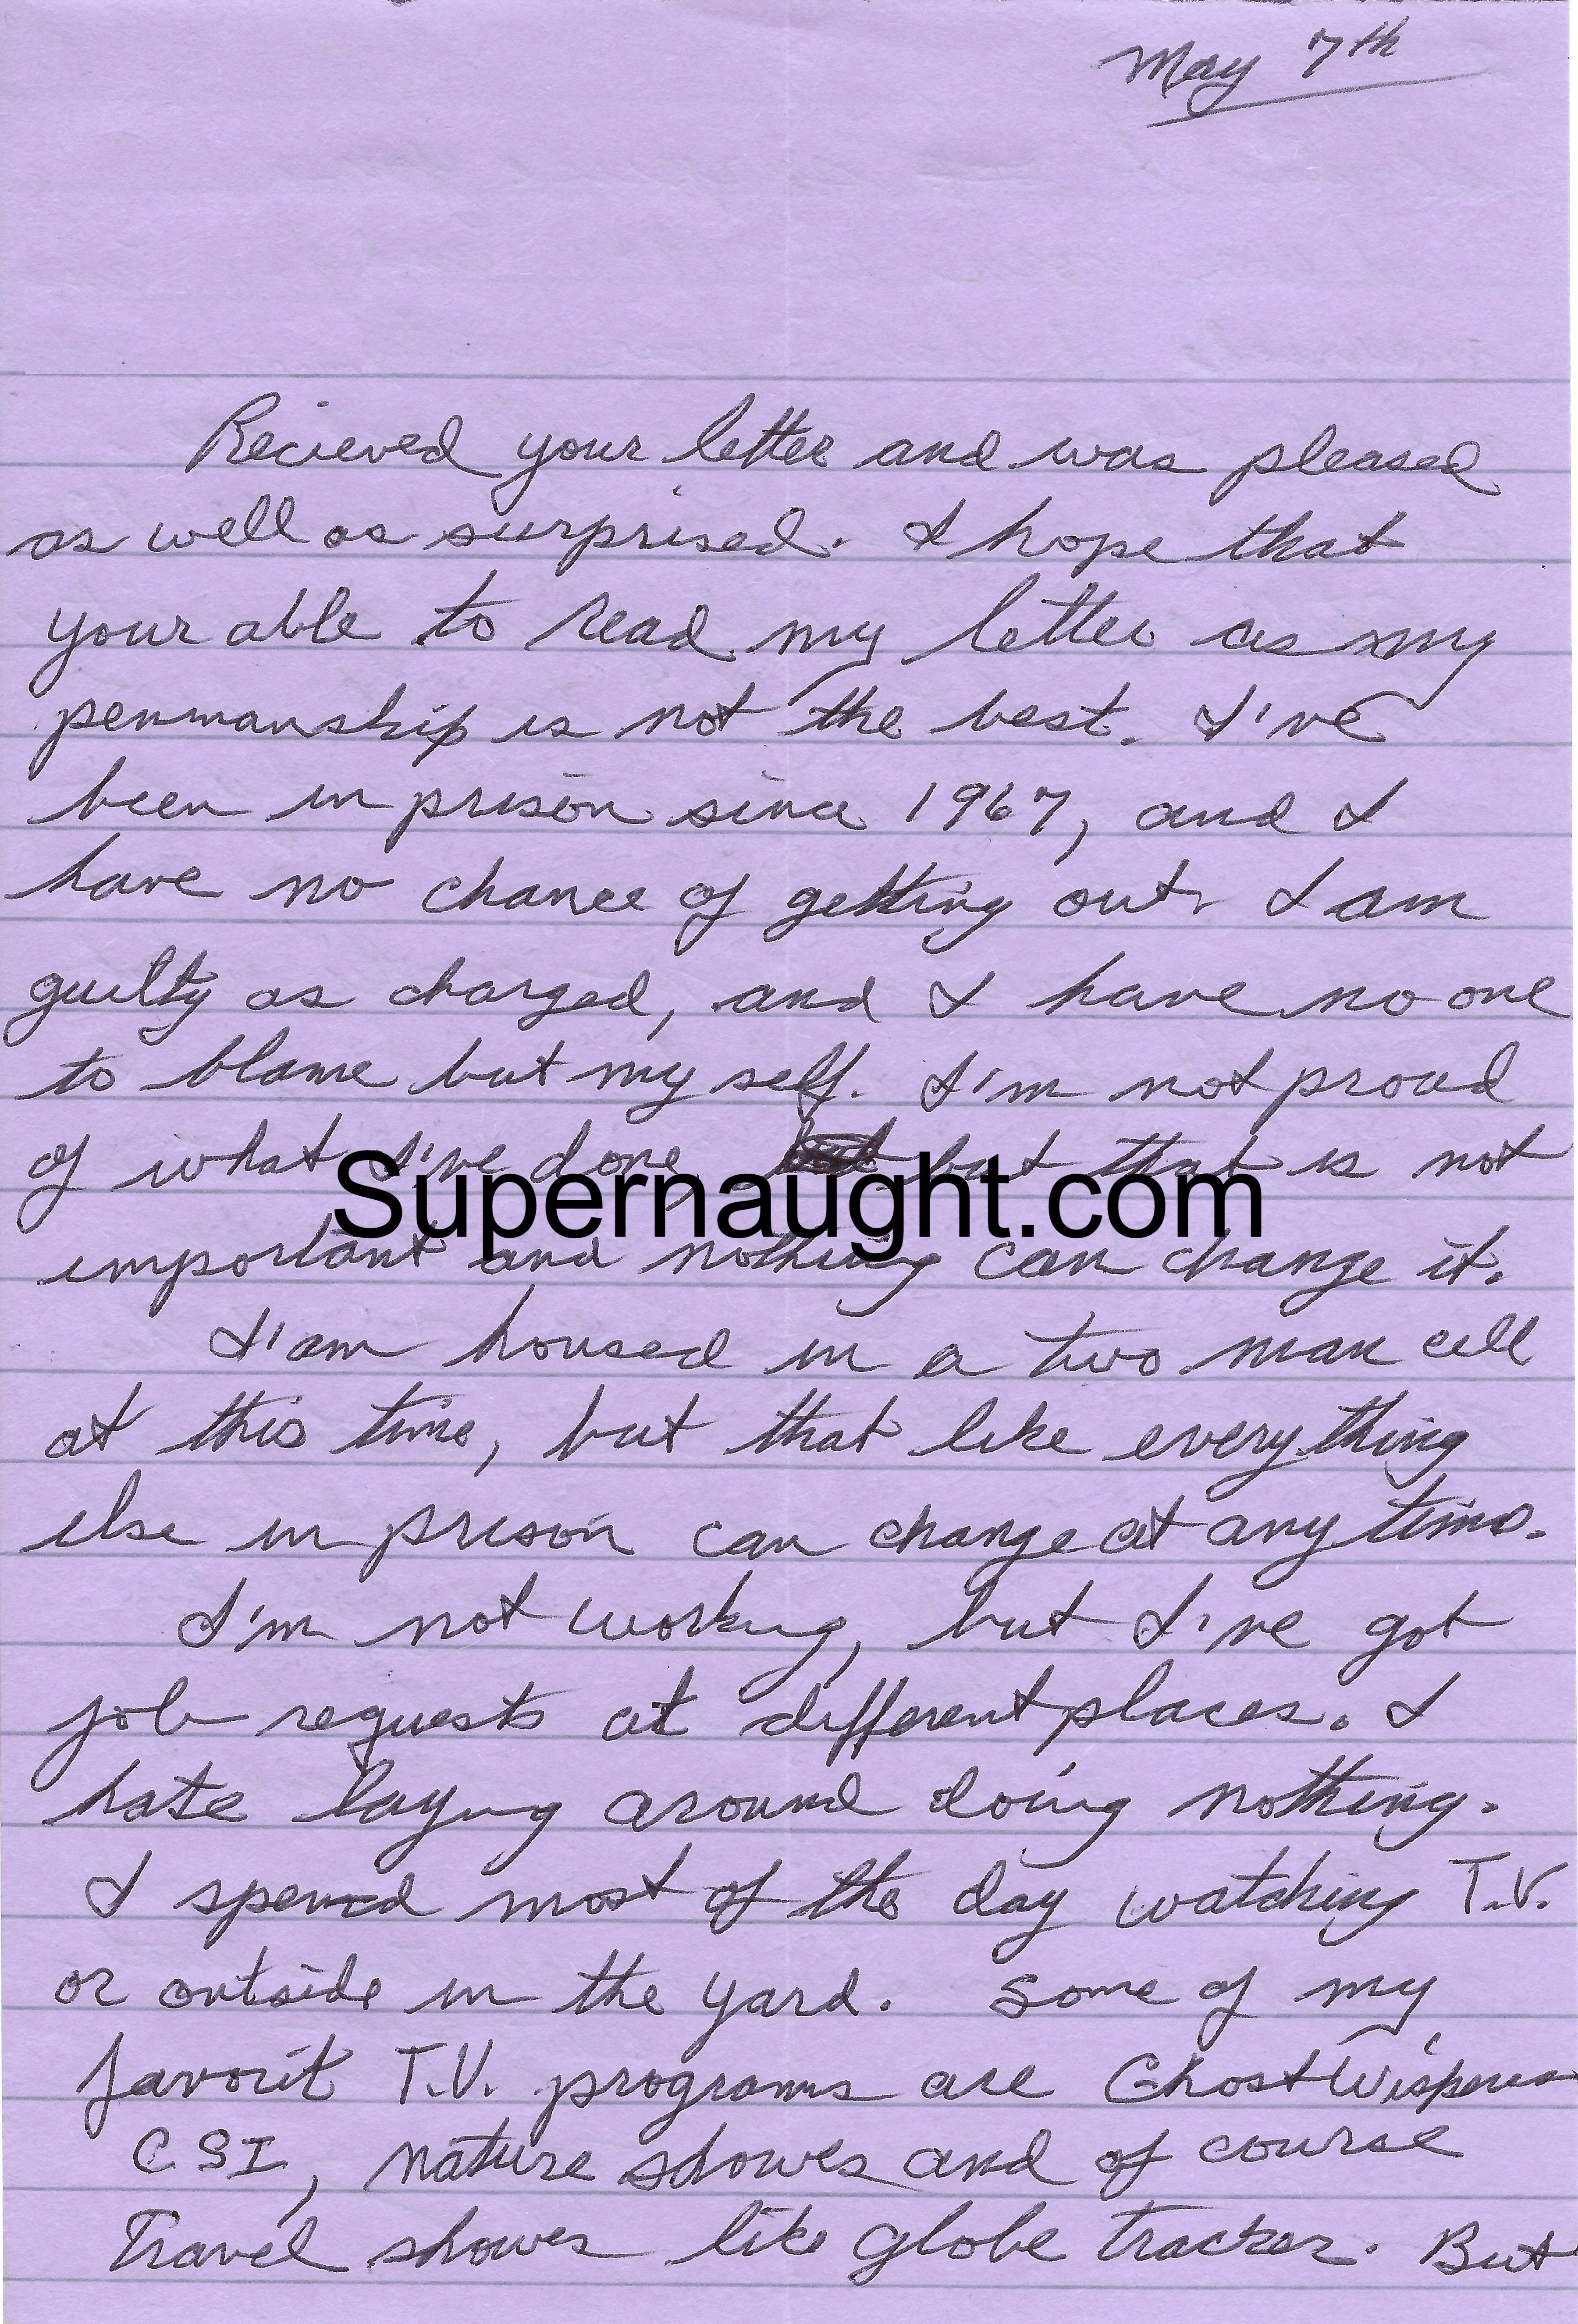 May 7th
Recieved your letter and was pleased
as well as surprised. I hope that
your able to read my letter as my
penmanship is not the best. I've
been in prison since 1967, and I
have no chance of getting out. I am
guilty as charged, and I have no one
to blame but my self. I'm not proud
of what I've done, but that is not
Supernaught.com
important and nothing can change it.
I'am housed in a two man cell
at this time, but that like every thing
else in prison can change at any time.
I'm not working, but I've got
job requests at different places. I
hate laying around doing nothing.
I spend most of the day watching T.V.
or outside in the yard. Some of my
favorit T.V. programs are Ghost Wisperer
CSI, nature showes and of course
Travel showes like globe tracker. But